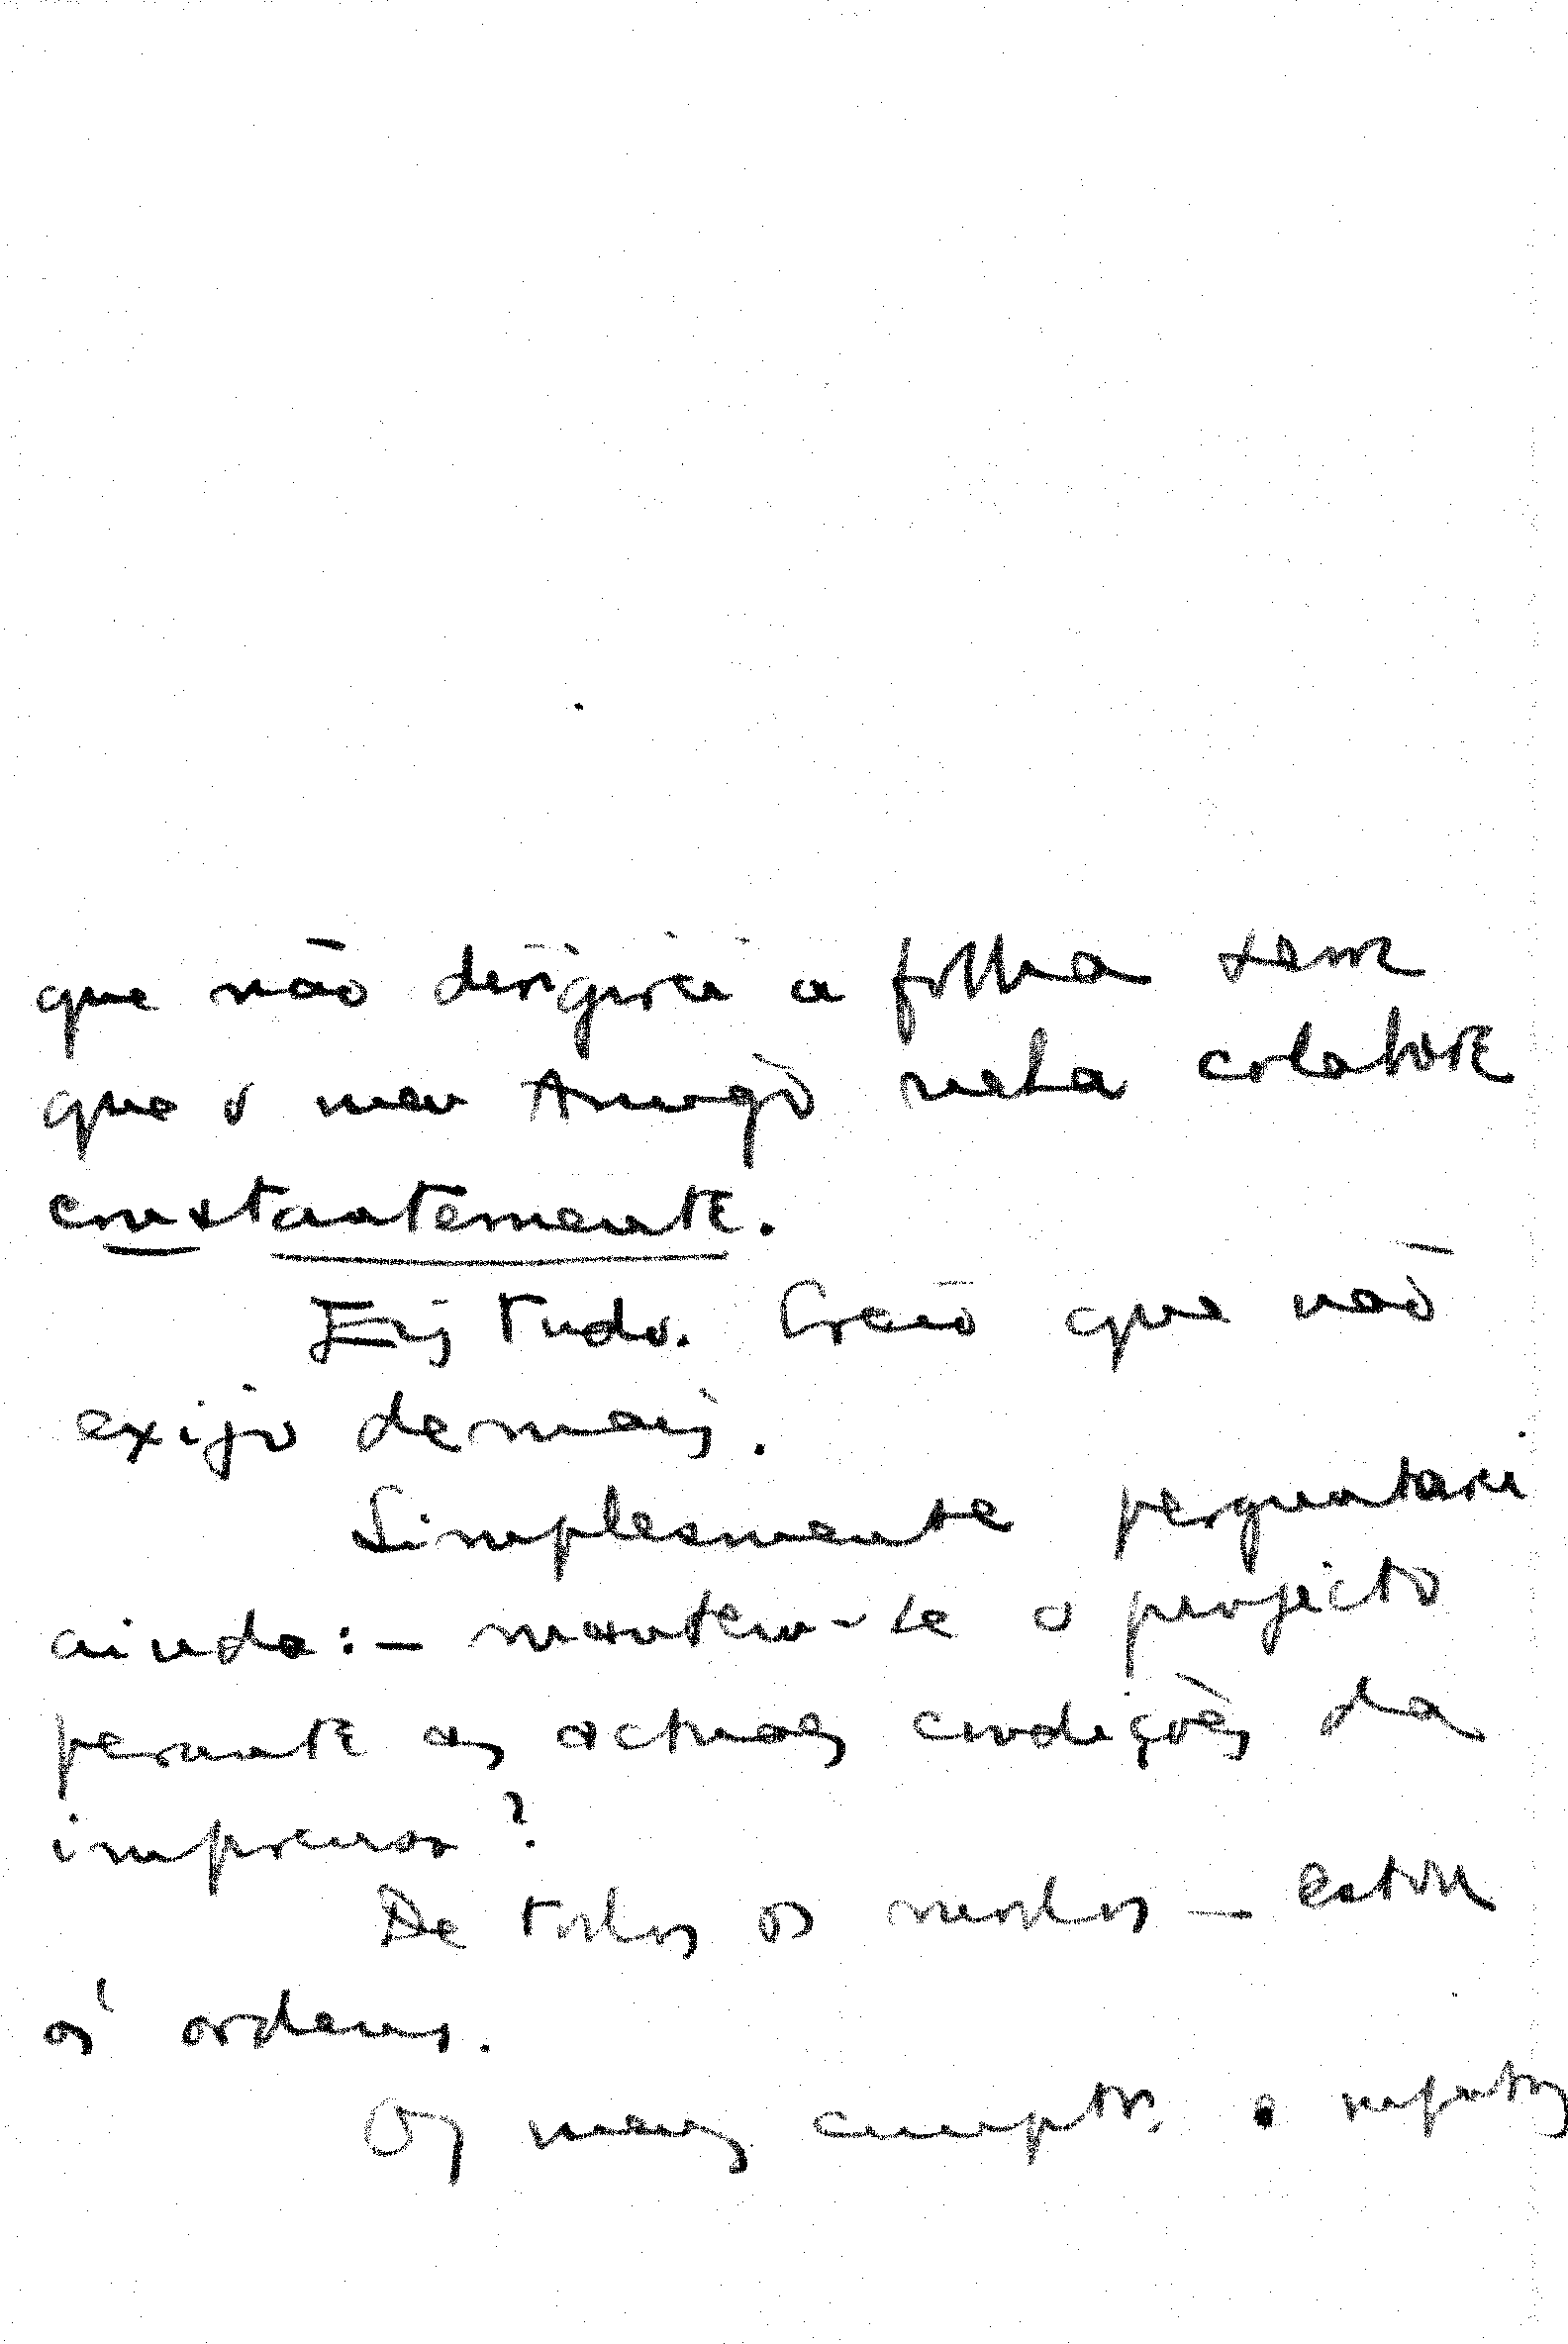 que não dirigirei a folha sem
que o meu Amigo nela colabore
constantemente.
Eis tudo. Creio que não
exijo demais.
Simplesmente perguntarei
ainda: — mantem-se o projecto
perante as actuaes condições da
imprensa?
De todos os modos — estou
ás ordens.
Os meus cumptos. e